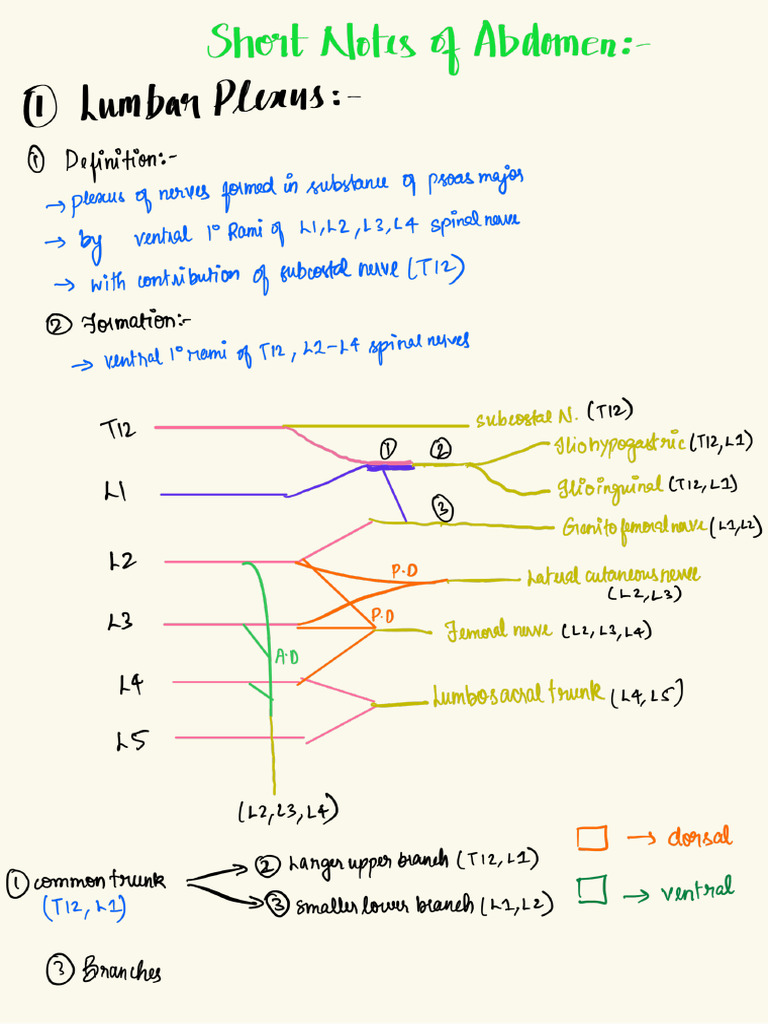 Short Notes of Abdomen:-
① Lumbar Plexus:-
① Definition:-
→ plexus of nerves formed in substance of psoas major
→ by ventral 1° Rami of L1, L2, L3, L4 spinal nerve
→ with contribution of subcostal nerve (T12)
② Formation:-
→ ventral 1° rami of T12, L2-L4 spinal nerves
T12
subcostal N. (T12)
① ②
Iliohypogastric (T12, L1)
L1
Ilioinguinal (T12, L1)
③
Granito femoral nerve (L1, L2)
L2
P.D
Latural cutaneous nerve
(L2, L3)
L3
P.D
Femoral nerve (L2, L3, L4)
A.D
L4
Lumbosacral trunk (L4, L5)
L5
(L2, L3, L4)
→ dorsal
① common trunk
(T12, L1)
② Larger upper branch (T12, L1)
③ smaller lower branch (L1, L2)
→ ventral
③ Branches